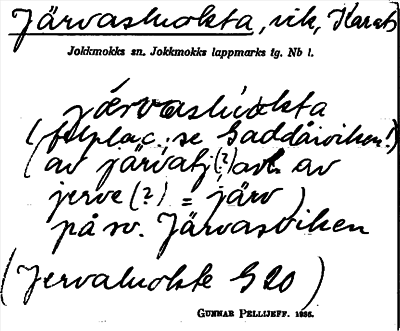 Järvasluokta, vik, Karats
Jokkmokks sn. Jokkmokks lappmarks tg. Nb l.
järvaslúokta
(felplac. se Gaddåiviken!)
(av järvatj (?) avl. av
jerve (?) = järv)
på sv. Järvasviken
(Jervaluokte G 20)
GUNNAR PELLIJEFF. 1936.